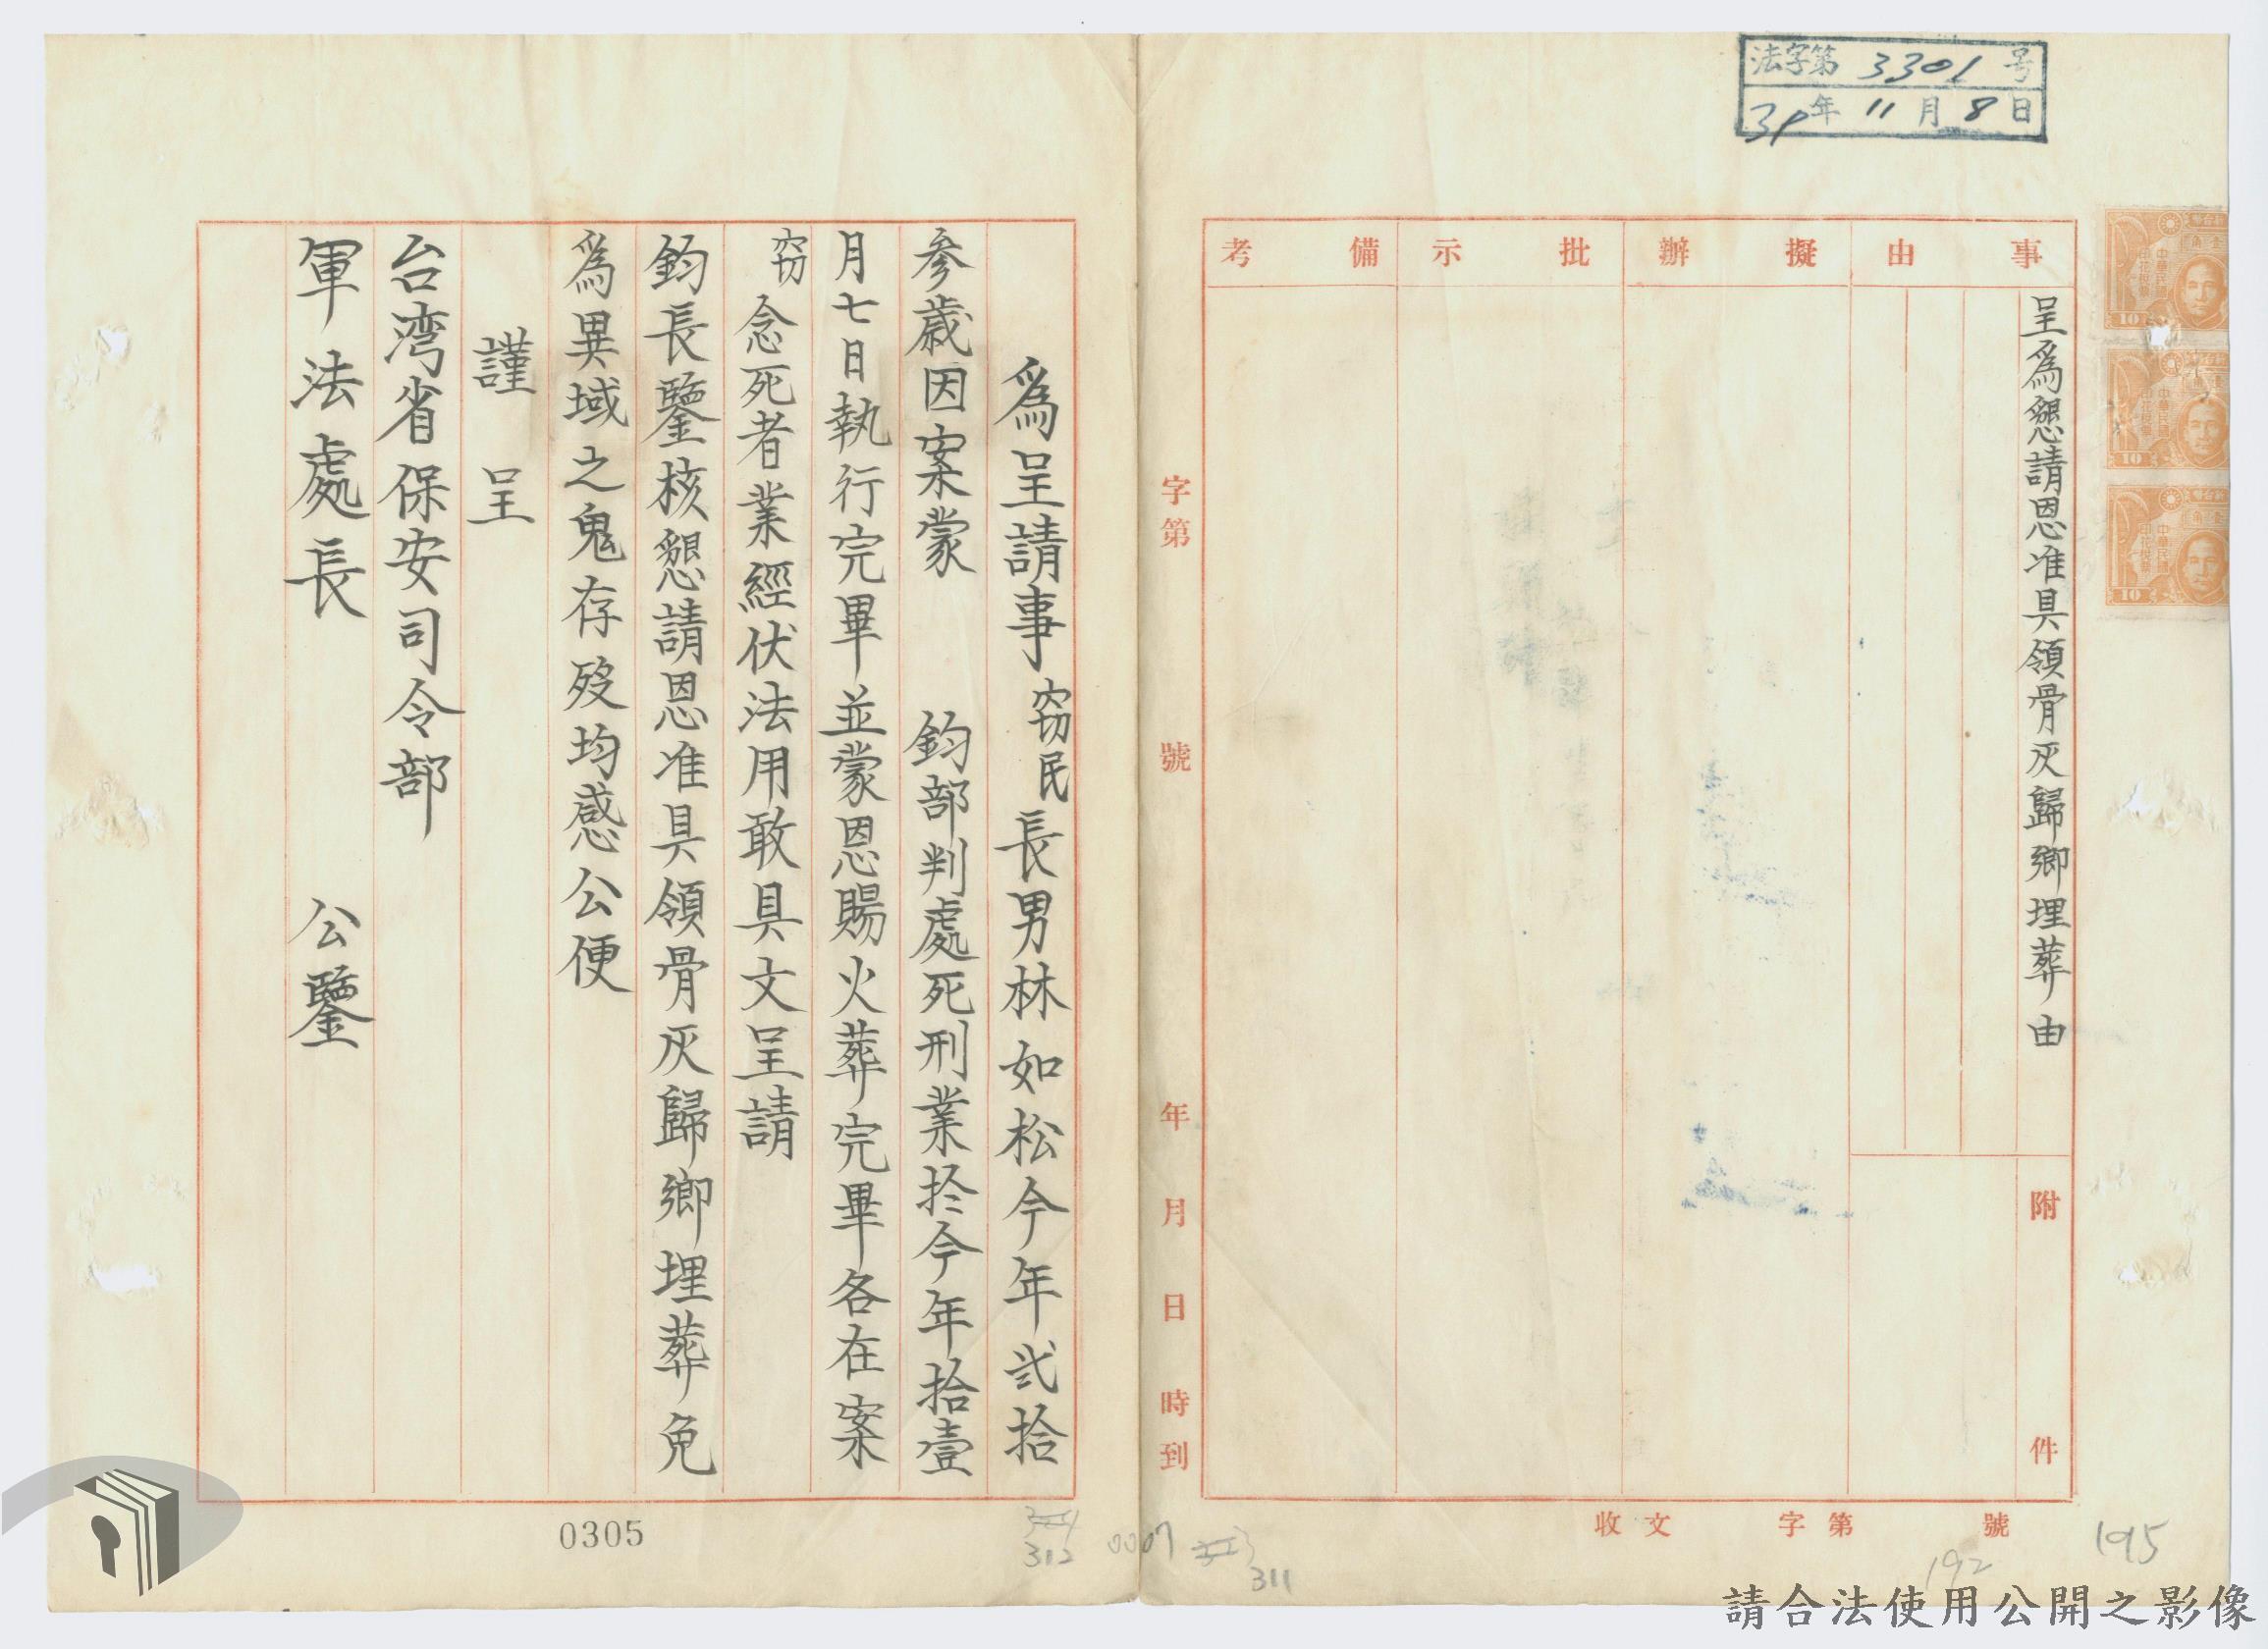 法字第 3301 号
39年 11月 8日
事由
擬辦
批示
備考
呈為懇請恩准具領骨灰歸鄉埋葬由
附件
收文 字第 號
字第 號
年 月 日 時到
為呈請事竊民長男林如松今年弍拾
參歲因案蒙 鈞部判處死刑業於今年拾壹
月七日執行完畢並蒙恩賜火葬完畢各在案
竊念死者業經伏法用敢具文呈請
鈞長鑒核懇請恩准具領骨灰歸鄉埋葬免
為異域之鬼存歿均感公便
謹呈
台湾省保安司令部
軍法處長 公鑒
0305
312
0007
311
192
195
中華民國
印花稅票
10
中華民國
印花稅票
10
中華民國
印花稅票
10
請合法使用公開之影像